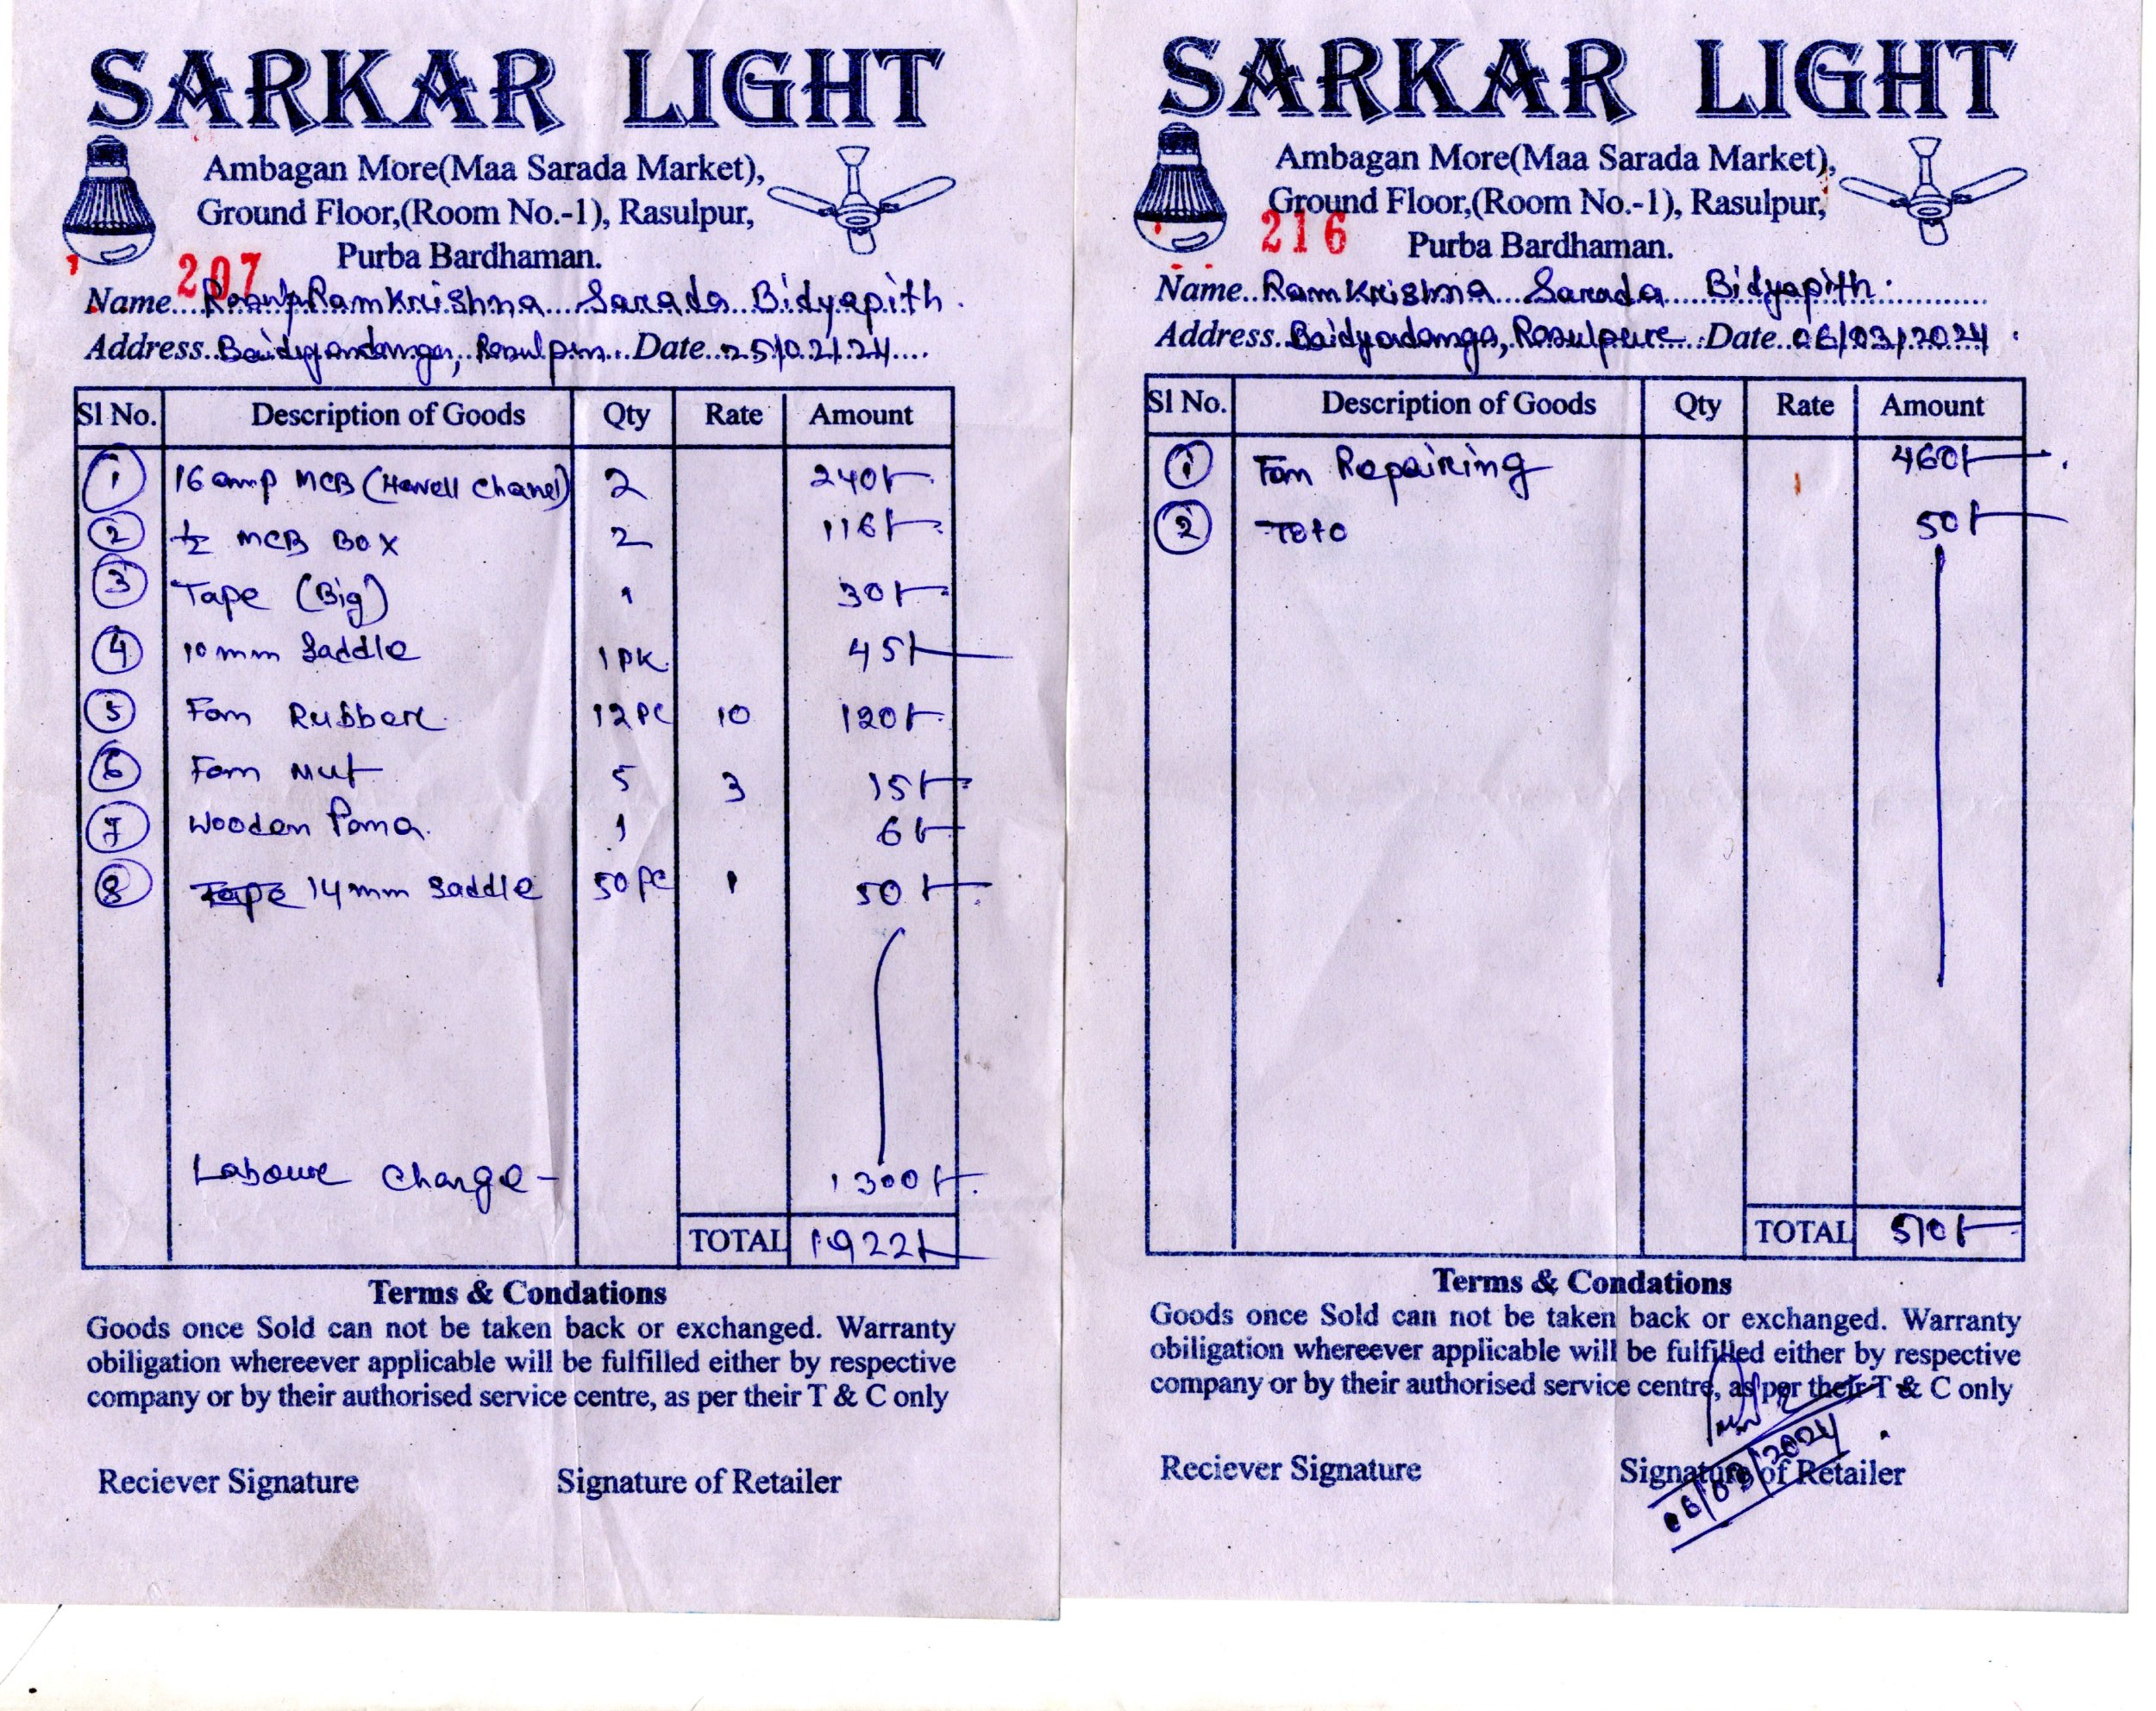 SARKAR LIGHT
Ambagan More(Maa Sarada Market),
Ground Floor,(Room No.-1), Rasulpur,
Purba Bardhaman.
207
Name RamKrishna Sarada Bidyapith.
Address Baidyadanga, Rasulpur Date 25/02/24
Sl No. Description of Goods Qty Rate Amount
1 16 amp MCB (Havell Chanel) 2 240/-
2 1/2 MCB BOX 2 116/-
3 Tape (Big) 1 30/-
4 10 mm Saddle 1 PK 45/-
5 Fan Rubber 12 PC 10 120/-
6 Fan Nut 5 3 15/-
7 Wooden 1 6/-
8 Tape 14 mm Saddle 50 PC 1 50/-
Laboure Charge - 1300/-
TOTAL 1922/-
Terms & Condations
Goods once Sold can not be taken back or exchanged. Warranty
obiligation whereever applicable will be fulfilled either by respective
company or by their authorised service centre, as per their T & C only
Reciever Signature Signature of Retailer
SARKAR LIGHT
Ambagan More(Maa Sarada Market),
Ground Floor,(Room No.-1), Rasulpur,
216
Purba Bardhaman.
Name RamKrishna Sarada Bidyapith.
Address Baidyadanga, Rasulpure Date 06/03/2024
Sl No. Description of Goods Qty Rate Amount
1 Fan Repairing 460/-
2 Toto 50/-
TOTAL 510/-
Terms & Condations
Goods once Sold can not be taken back or exchanged. Warranty
obiligation whereever applicable will be fulfilled either by respective
company or by their authorised service centre, as per their T & C only
Reciever Signature Signature of Retailer
06/03/2024